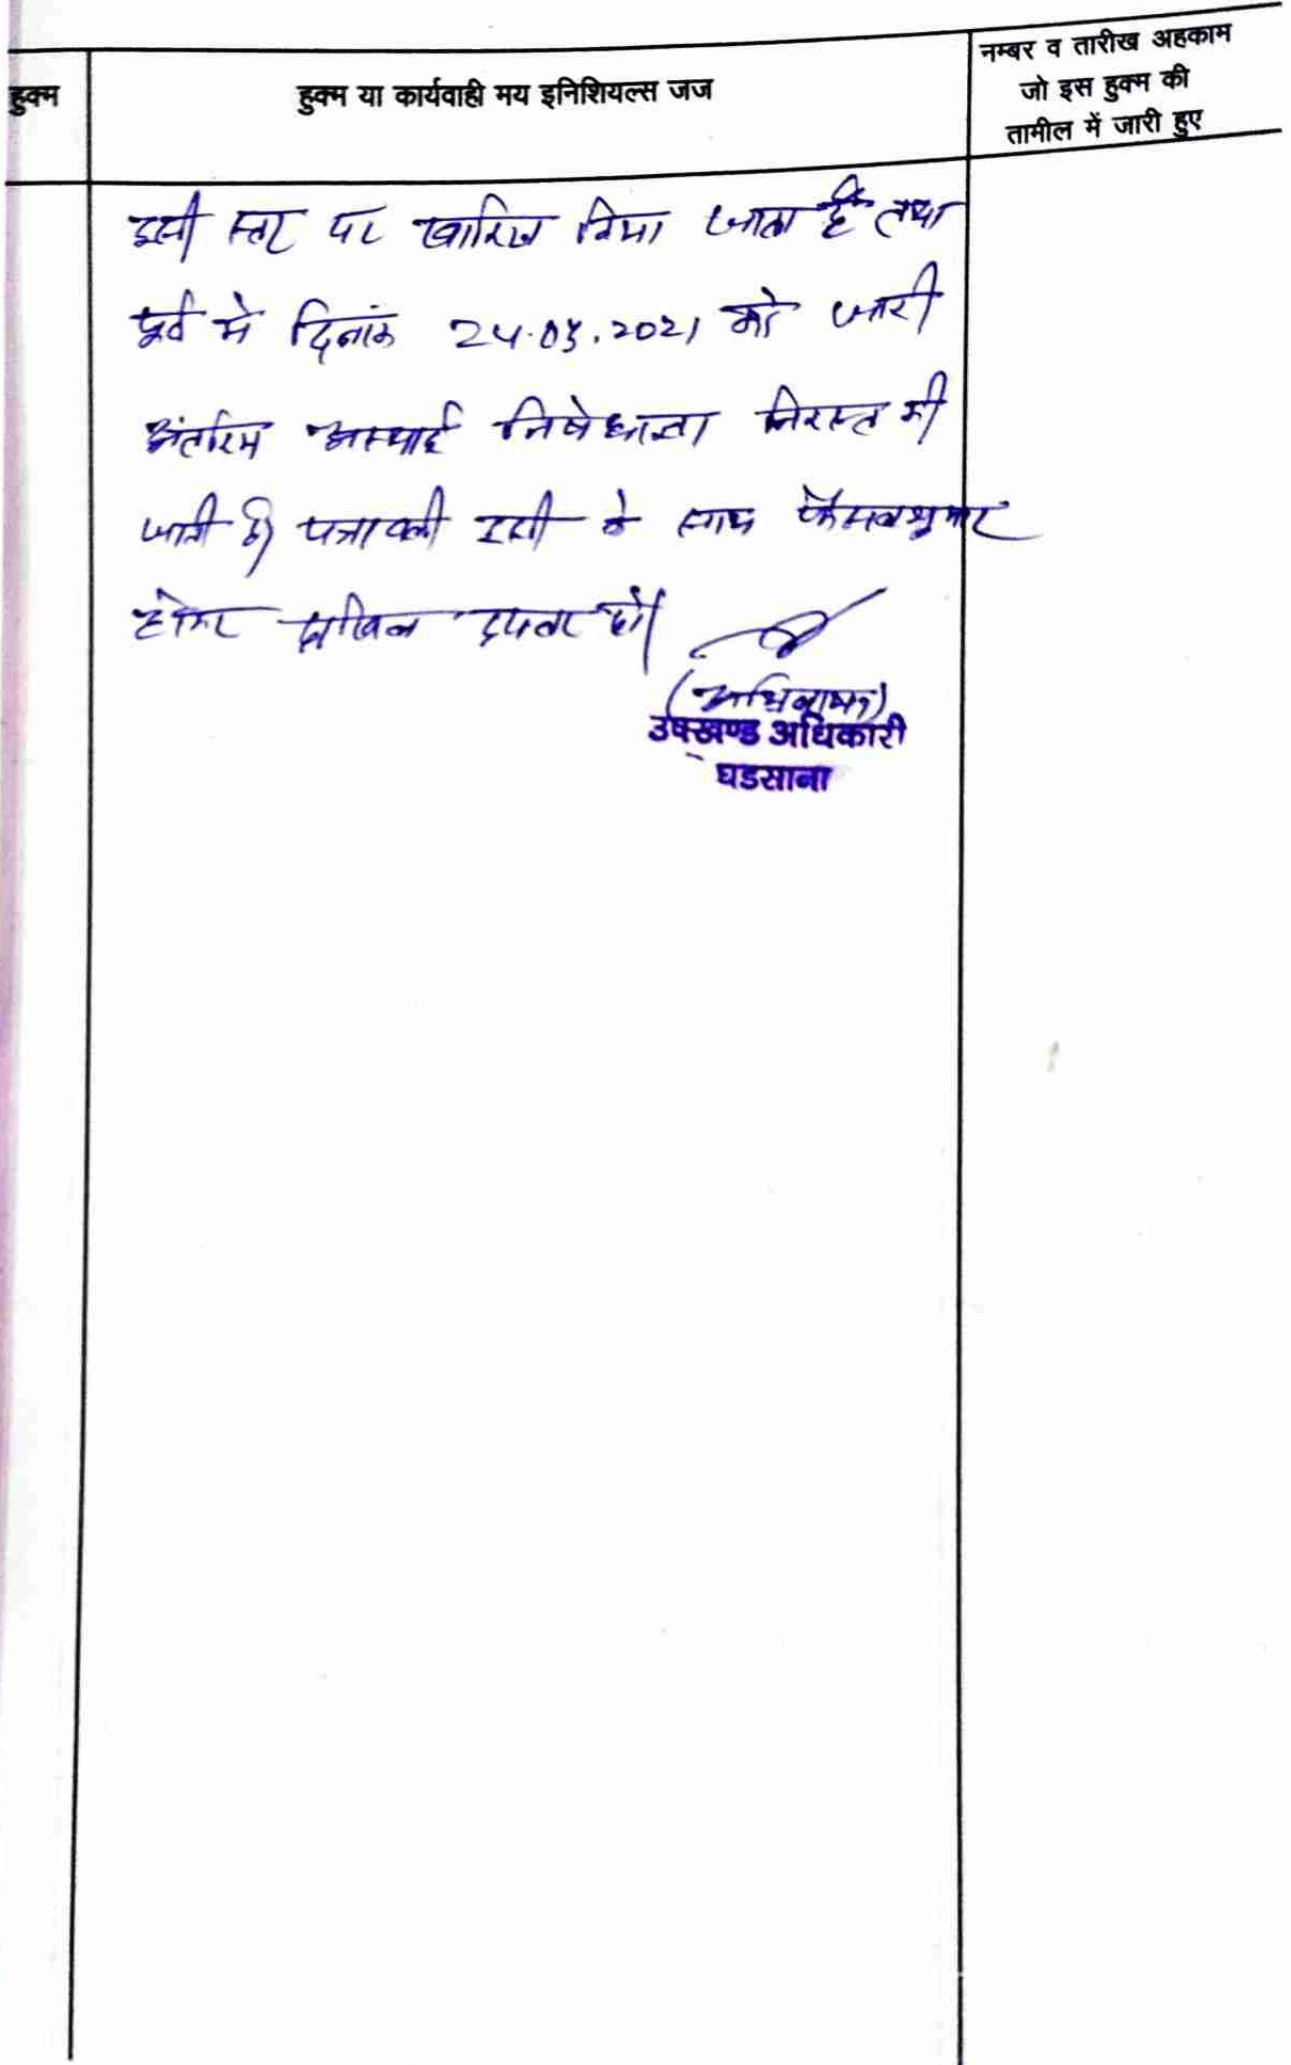 हुक्म
हुक्म या कार्यवाही मय इनिशियल्स जज
नम्बर व तारीख अहकाम
जो इस हुक्म की
तामील में जारी हुए
इसी स्तर पर खारिज किया जाता है तथा
पूर्व में दिनांक 24.03.2021 को जारी
अंतरिम अस्थाई निषेधाज्ञा निरस्त की
जाती है। पत्रावली इसी के साथ फैसलशुमार
होकर दाखिल दफ्तर हो।
उपखण्ड अधिकारी
घडसाना